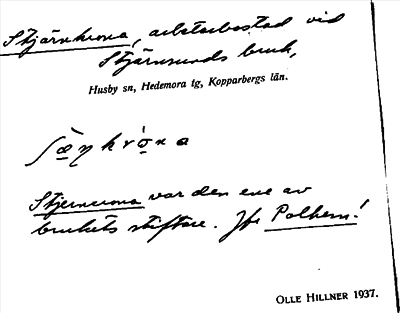 Stjärnkrona, arbetarbostad vid
Stjärnsunds bruk,
Husby sn, Hedemora tg, Kopparbergs län.
ʃæ̀ŋkrónа
Stjerncrona var den ene av
brukets stiftare. Jfr Polhem!
OLLE HILLNER 1937.